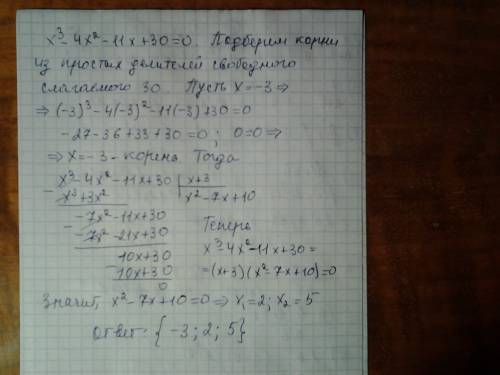 x³-4x²-11x+30=0. Подберём корни
из простых делителей свободного
слагаемого 30. Пусть x=-3 ⇒
⇒ (-3)³-4(-3)²-11(-3)+30=0
-27-36+33+30=0; 0=0 ⇒
⇒ x=-3 - корень. Тогда
x³-4x²-11x+30 | x+3
- x³+3x² | x²-7x+10
-7x²-11x+30
- -7x²-21x+30
10x+30
- 10x+30
0
Теперь
x³-4x²-11x+30=
=(x+3)(x²-7x+10)=0
Значит, x²-7x+10=0 ⇒ x₁=2; x₂=5
Ответ: {-3; 2; 5}